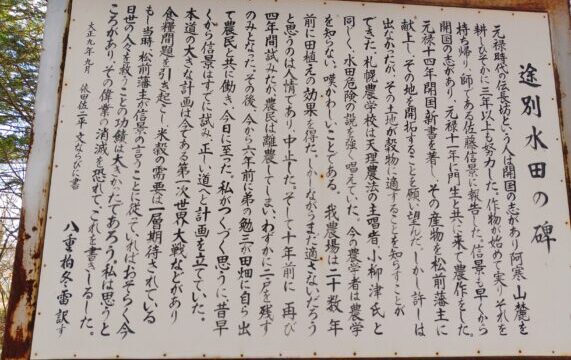 途別水田の碑
元禄時代の伝長坊という人は開国の志があり阿寒山麓を
耕しひそかに三年以上も努力した。作物が始めて実りそれを
持ち帰り、師である佐藤信景に報告した。信景も早くから
開国の志があり、元禄十一年門生と共に来て農作をした。
元禄十四年開国新書を著し、その産物を松前藩主に
献上し、その地を開拓することを願い望んだ。しかし許しは
出なかったが、その土地が穀物に適することを知らすことが
できた。札幌農学校は天理農法の主唱者小柳津氏と
同しく、水田危険の説を強く唱えていた。今の農学者は農学
を知らない。嘆かわしいことである。我農場は二十数年
前に田植えの効果を得た。しかしながらまだ適さないだろう
と思うのは人情であり、中止した。そして十年前に再び
四年間試みたが、農民は離農してしまい、わずかに二戸を残す
のみとなった。その後、今から六年前に弟の勉三が田畑に自ら出
て農民と共に働き、今日に至った。私がつくづく思うに、昔早
くから信景はすでに試み、正しい道と計画を立てていた。
本道の大きな計画は今である第一次世界大戦などがあり
食糧問題を引き起こし、米穀の需要は一層期待されている
もし当時、松前藩主が信景の言うことに従っていればおそらく今
日世の人々を救うことの功績は大きかったであろう。私は思うと
ころがあり、その偉業の消滅を恐れて、これを書きしるした。
大正九年九月 依田佐二平 文ならびに書
八重柏冬雷訳す